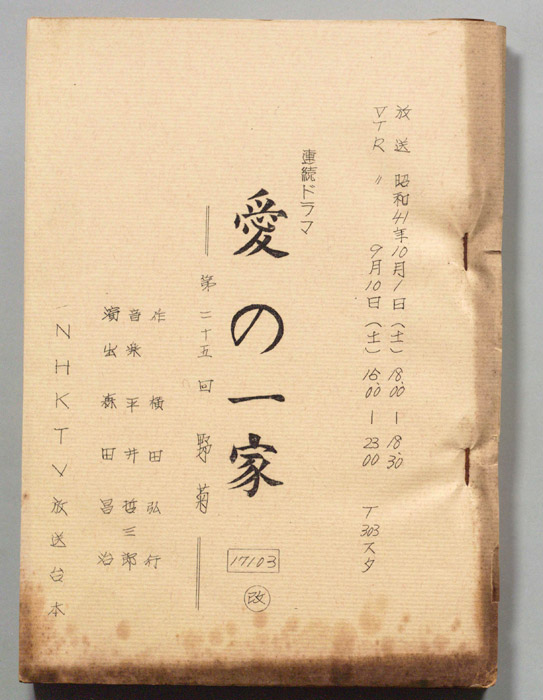 放送 昭和41年10月1日(土) 18.00 ー 18.30
VTR 〃 9月10日(土) 15.00 ー 23.00 T303スタ
連続ドラマ
愛の一家
17103
改
第二十五回 野菊
作 横田弘行
音楽 平井哲三郎
演出 森田昌治
NHKTV放送台本